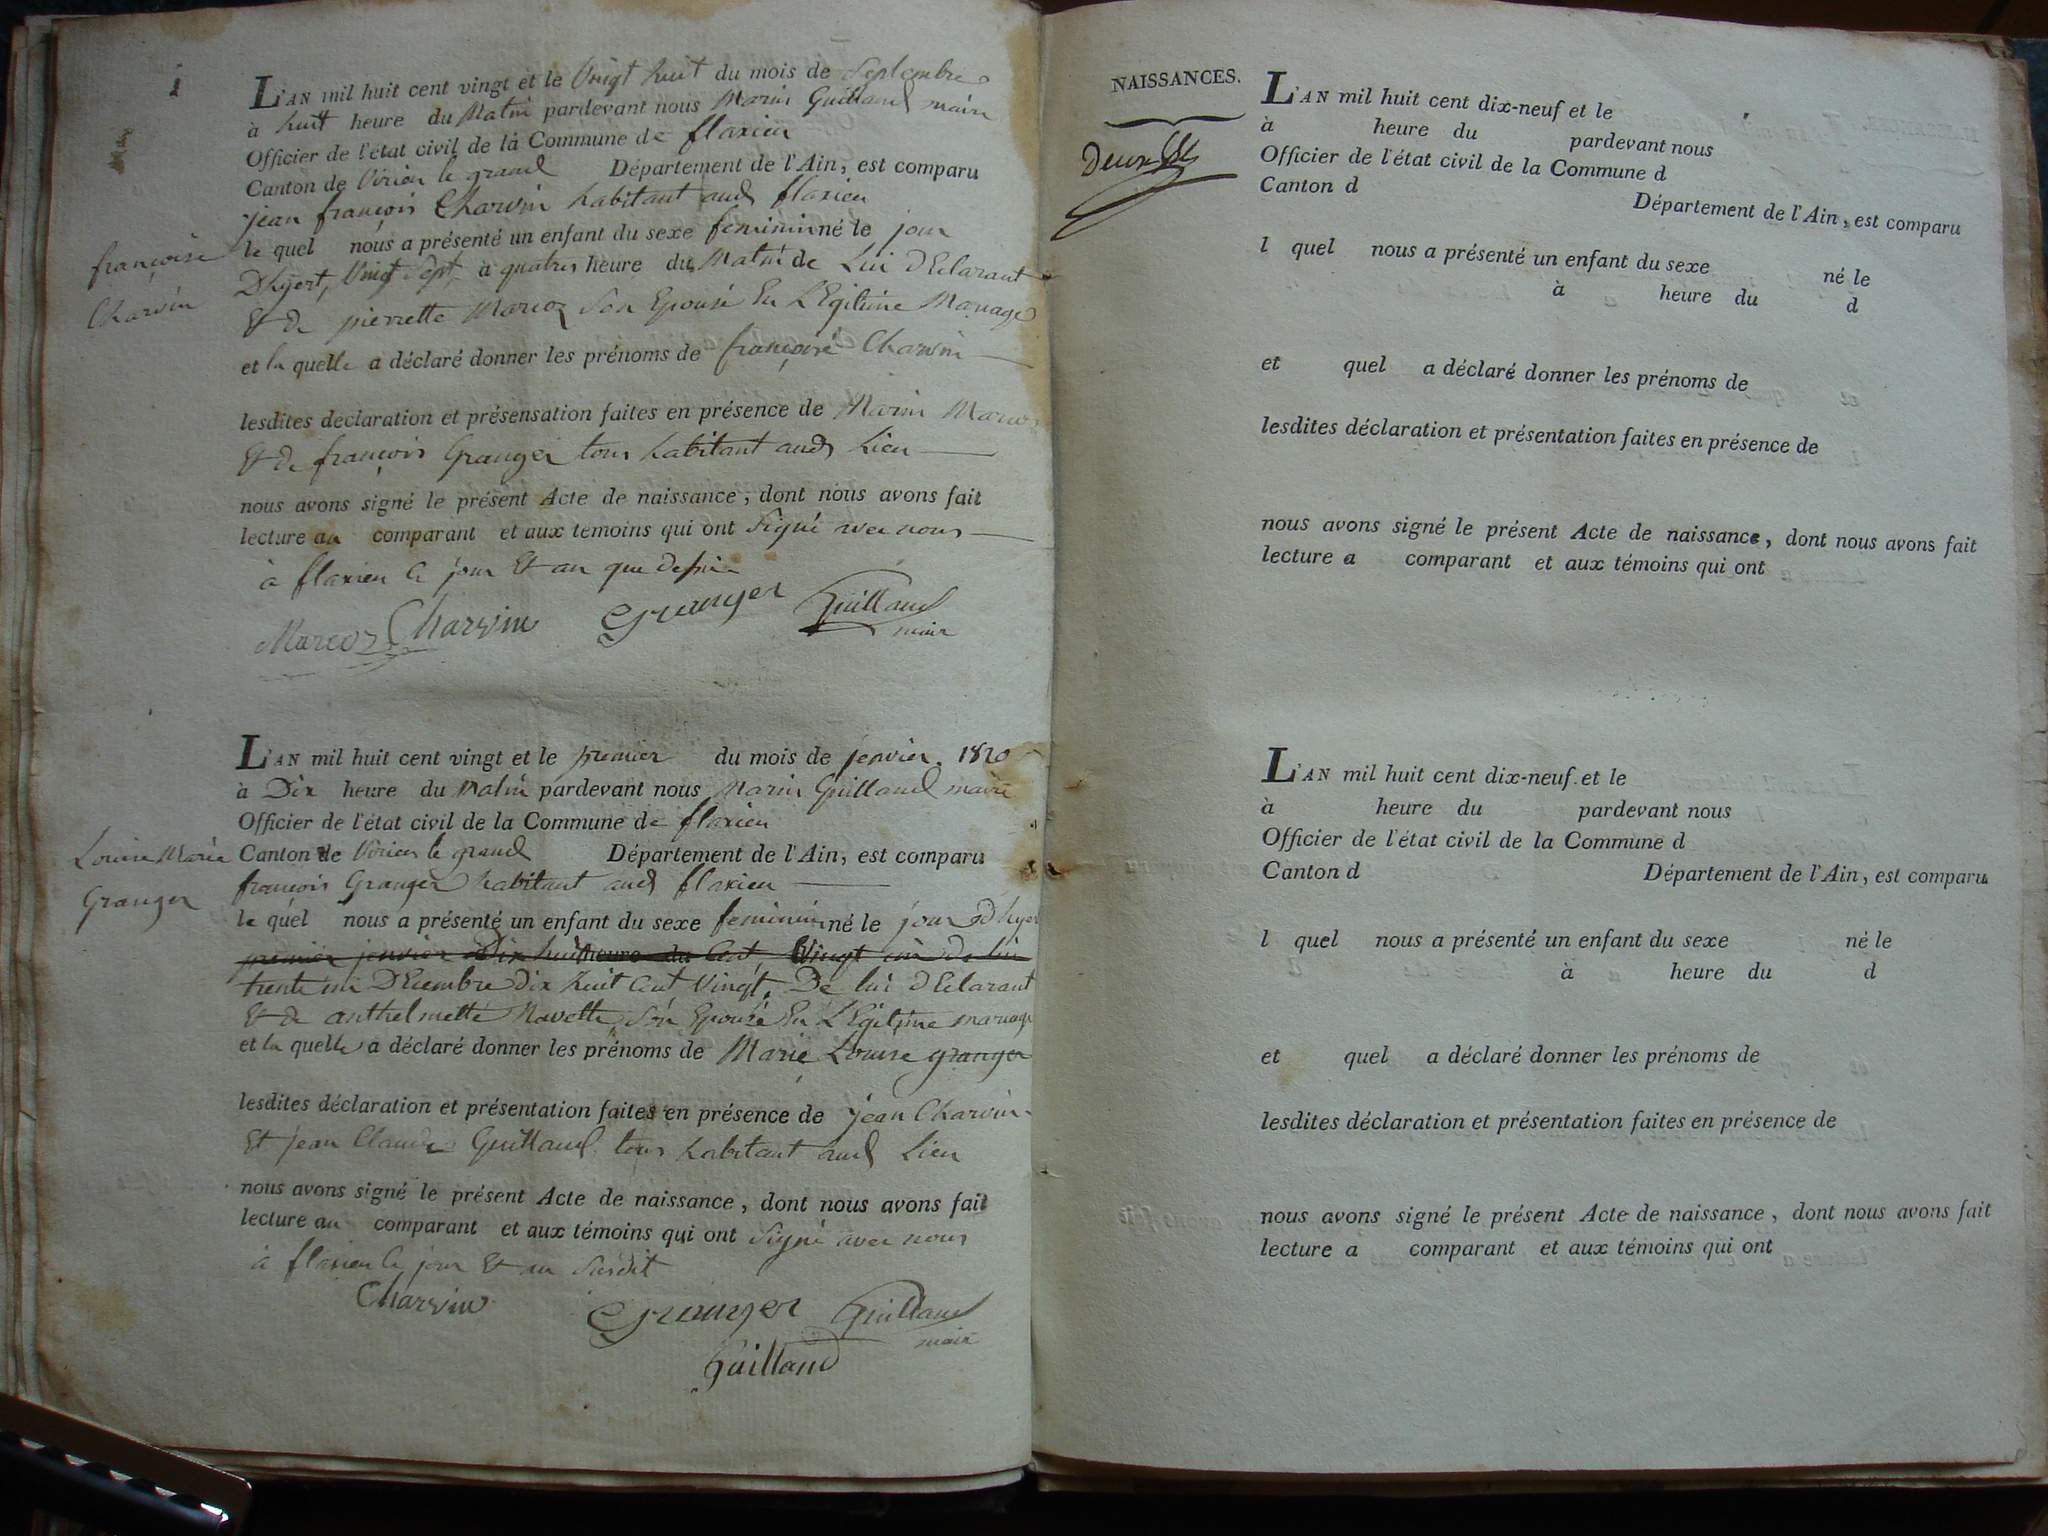 L'AN mil huit cent vingt et le Vingt huit du mois de Septembre
à huit heure du Matin pardevant nous Marin Guilland maire
Officier de l'état civil de la Commune de flaxieu
Canton de Virieu le grand Département de l'Ain, est comparu
jean françois Charvin habitant aud flaxieu
le quel nous a présenté un enfant du sexe feminin né le jour
D'hyert, Vingt Sept, à quatres heure du Matin de Lui dEclarant
Et de pierrette Marcoz Son Epouse En LEgitime Mariage
et la quelle a déclaré donner les prénoms de françoise Charvin
lesdites declaration et présensation faites en présence de Marin Marcoz
Et de françois Granger tous habitant aud Lieu
nous avons signé le présent Acte de naissance, dont nous avons fait
lecture au comparant et aux temoins qui ont Signé avec nous
à flaxieu le jour Et an que dessus
Marcoz Charvin Granger Guilland
mair
françoise
Charvin
L'AN mil huit cent vingt et le premier du mois de jenvier. 1820
à Dix heure du Matin pardevant nous Marin Guilland maire
Officier de l'état civil de la Commune de flaxieu
Canton de Virieu le grand Département de l'Ain, est comparu
françois Granger habitant aud flaxieu
le quel nous a présenté un enfant du sexe feminin né le jour D'hyer
premier jenvier Dix huit heure du Cent Vingt
trente un DEcembre dix huit Cent Vingt. De lui dEclarant
Et de anthelmette Navette Son Epouse En LEgitime mariage
et la quelle a déclaré donner les prénoms de Marie Louise granger
lesdites déclaration et présentation faites en présence de jean Charvin
Et jean Claude Guilland tous habitant aud Lieu
nous avons signé le présent Acte de naissance, dont nous avons fait
lecture au comparant et aux témoins qui ont Signé avec nous
à flaxieu le jour Et an Susdit
Charvin Granger Guilland
mair
Guilland
Louise Marie
Granger
NAISSANCES.
Deux
L'AN mil huit cent dix-neuf et le
à heure du pardevant nous
Officier de l'état civil de la Commune d
Canton d Département de l'Ain, est comparu
l quel nous a présenté un enfant du sexe né le
à heure du d
et quel a déclaré donner les prénoms de
lesdites déclaration et présentation faites en présence de
nous avons signé le présent Acte de naissance, dont nous avons fait
lecture a comparant et aux témoins qui ont
L'AN mil huit cent dix-neuf et le
à heure du pardevant nous
Officier de l'état civil de la Commune d
Canton d Département de l'Ain, est comparu
l quel nous a présenté un enfant du sexe né le
à heure du d
et quel a déclaré donner les prénoms de
lesdites déclaration et présentation faites en présence de
nous avons signé le présent Acte de naissance, dont nous avons fait
lecture a comparant et aux témoins qui ont